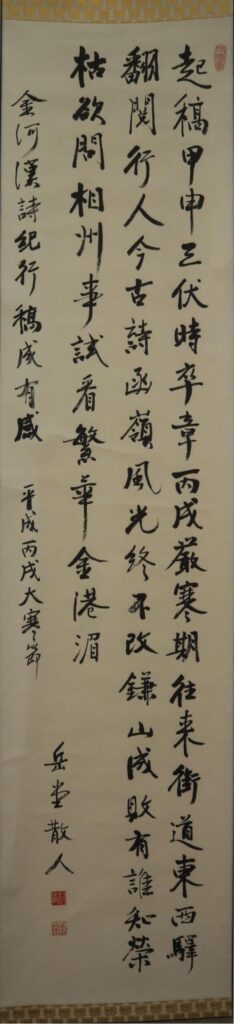 起稿甲申三伏時卒章丙戌嚴寒期往来街道東西驛
翻閲行人今古詩函嶺風光終不改鎌山成敗有誰知榮
枯欲問相州事試看繁華金港湄
金河漢詩紀行稿成有感 平成丙戌大寒節
岳堂散人